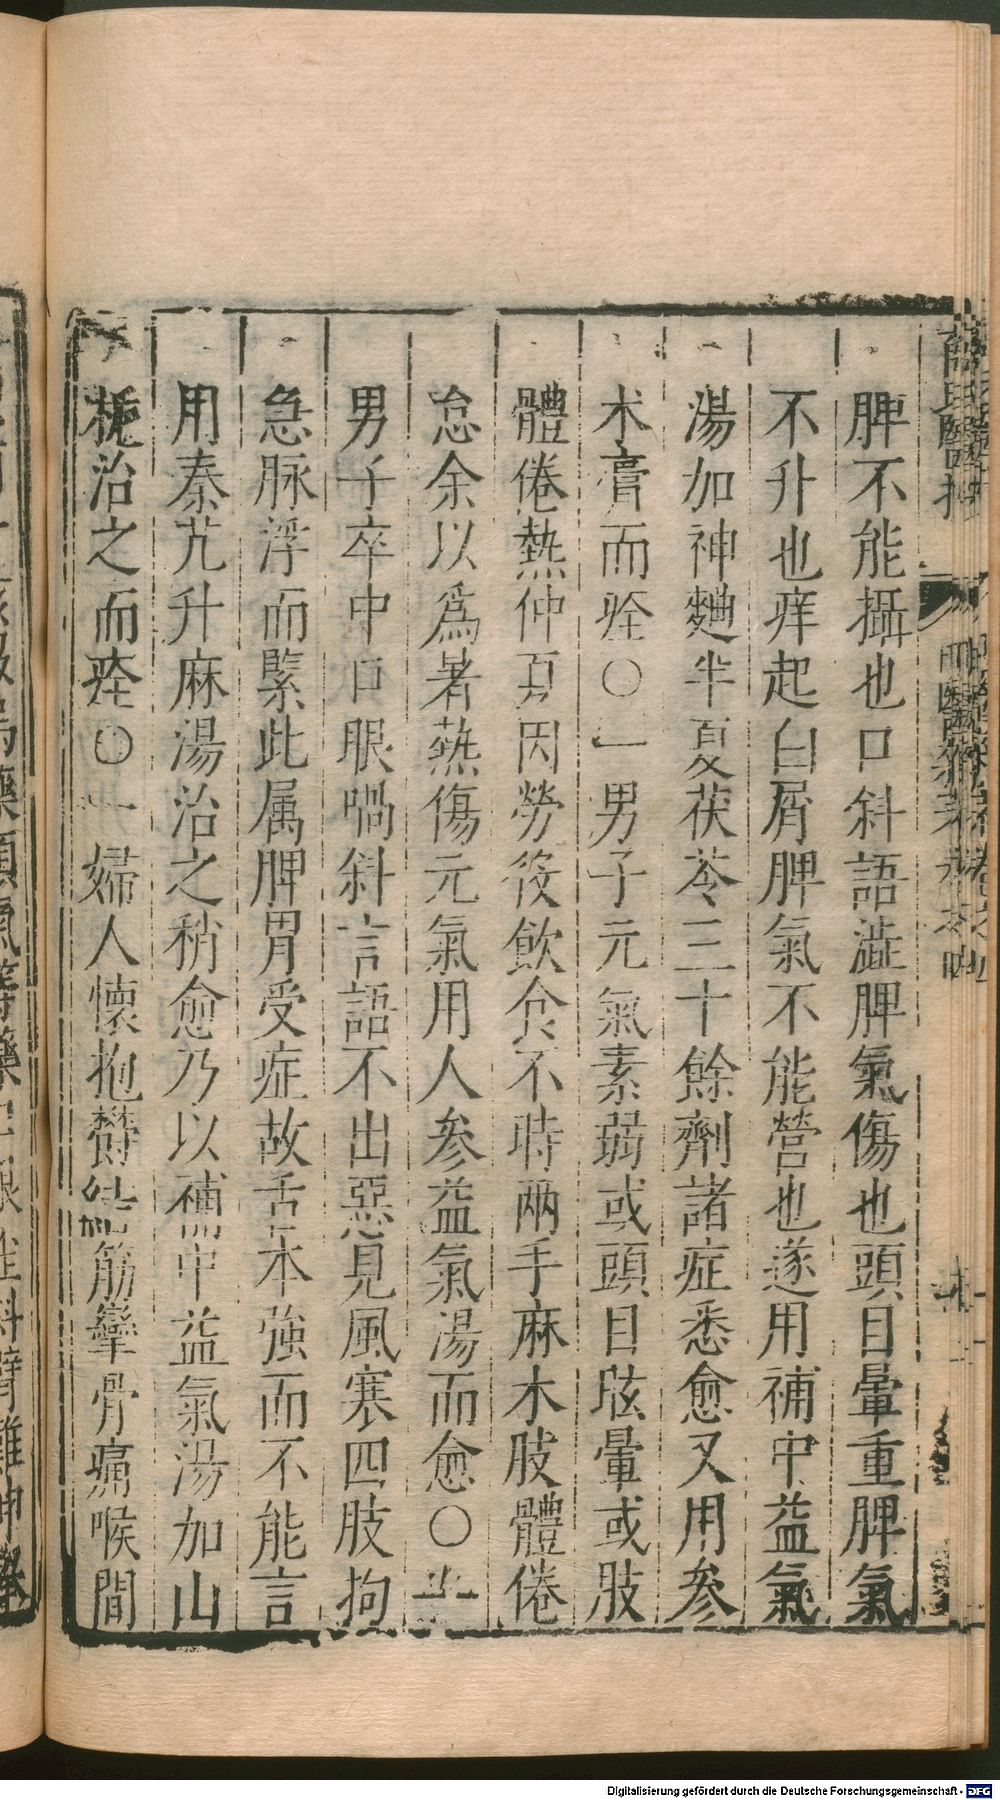 脾不能攝也口斜語澁脾氣傷也頭目暈重脾氣
不升也痒起白屑脾氣不能營也遂用補中益氣
湯加神麯半夏茯苓三十餘劑諸症悉愈又用參
术膏而痊○一男子元氣素弱或頭目眩暈或肢
體倦熱仲夏因勞役飲食不時兩手麻木肢體倦
怠余以爲暑熱傷元氣用人參益氣湯而愈○
男子卒中口眼喎斜言語不出惡見風寒四肢拘
急脉浮而緊此属脾胃受症故舌本強而不能言
用秦艽升麻湯治之稍愈乃以補中益氣湯加山
梔治之而痊○一婦人懷抱欝結筋攣骨痛喉間
Digitalisierung gefördert durch die Deutsche Forschungsgemeinschaft - DFG